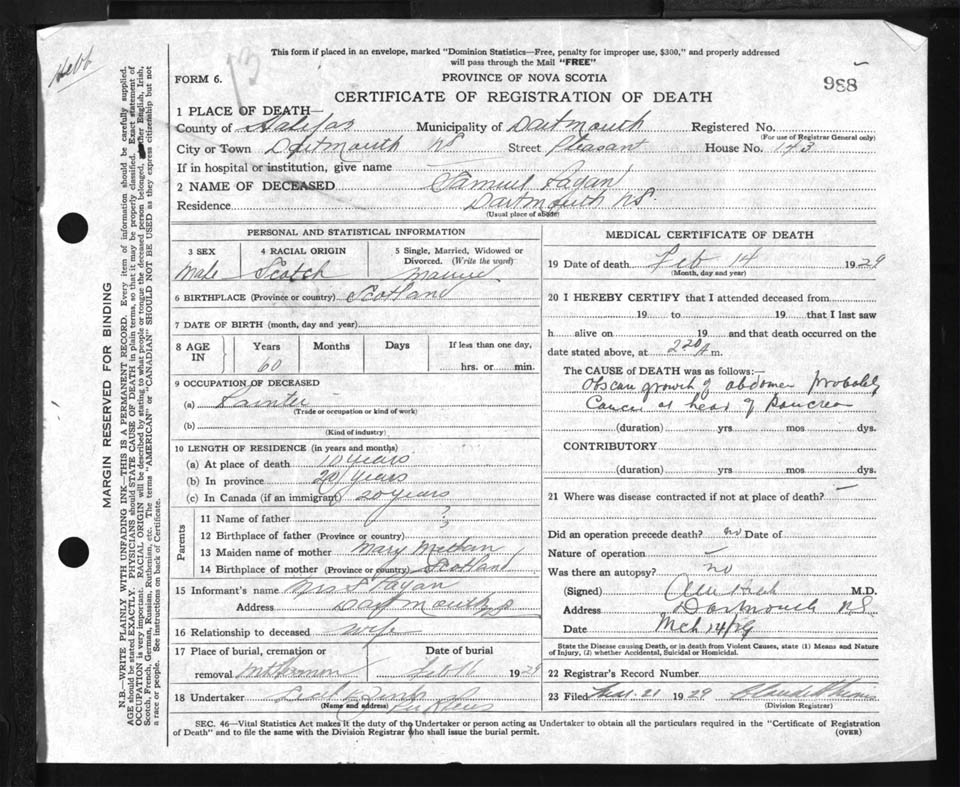 Hebb
13
This form if placed in an envelope, marked "Dominion Statistics—Free, penalty for improper use, $300," and properly addressed
will pass through the Mail "FREE"
FORM 6.
PROVINCE OF NOVA SCOTIA
988
CERTIFICATE OF REGISTRATION OF DEATH
1 PLACE OF DEATH—
County of Halifax Municipality of Dartmouth Registered No.
(For use of Registrar General only)
City or Town Dartmouth NS Street Pleasant House No. 143
If in hospital or institution, give name
2 NAME OF DECEASED Samuel Fagan
Residence Dartmouth NS.
(Usual place of abode)
PERSONAL AND STATISTICAL INFORMATION
3 SEX 4 RACIAL ORIGIN 5 Single, Married, Widowed or
Divorced. (Write the word)
Male Scotch Married
6 BIRTHPLACE (Province or country) Scotland
7 DATE OF BIRTH (month, day and year)
8 AGE IN Years Months Days If less than one day,
60 hrs. or min.
9 OCCUPATION OF DECEASED
(a) Painter
(Trade or occupation or kind of work)
(b)
(Kind of industry)
10 LENGTH OF RESIDENCE (in years and months)
(a) At place of death 10 years
(b) In province 20 years
(c) In Canada (if an immigrant) 20 years
Parents
11 Name of father ?
12 Birthplace of father (Province or country) ?
13 Maiden name of mother Mary
14 Birthplace of mother (Province or country) Scotland
15 Informant's name Mrs S Fagan
Address Dartmouth NS
16 Relationship to deceased wife
17 Place of burial, cremation or Date of burial
removal Mt Hermon Feb 16 1929
18 Undertaker
(Name and address)
MEDICAL CERTIFICATE OF DEATH
19 Date of death Feb 14 1929
(Month, day and year)
20 I HEREBY CERTIFY that I attended deceased from
19 to 19 that I last saw
h alive on 19 and that death occurred on the
date stated above, at 2 20 A m.
The CAUSE OF DEATH was as follows:—
Obscure growth of abdomen probably
Cancer at head of Pancreas
(duration) yrs mos dys.
CONTRIBUTORY
(duration) yrs mos dys.
21 Where was disease contracted if not at place of death? —
Did an operation precede death? no Date of
Nature of operation —
Was there an autopsy? no
(Signed) M.D.
Address Dartmouth NS
Date Mch 14/29
State the Disease causing Death, or in death from Violent Causes, state (1) Means and Nature
of Injury, (2) whether Accidental, Suicidal or Homicidal.
22 Registrar's Record Number
23 Filed Mar. 21 1929
(Division Registrar)
SEC. 46—Vital Statistics Act makes it the duty of the Undertaker or person acting as Undertaker to obtain all the particulars required in the "Certificate of Registration
of Death" and to file the same with the Division Registrar who shall issue the burial permit.
(OVER)
MARGIN RESERVED FOR BINDING
N.B.—WRITE PLAINLY WITH UNFADING INK—THIS IS A PERMANENT RECORD. Every item of information should be carefully supplied.
AGE should be stated EXACTLY. PHYSICIANS should STATE CAUSE OF DEATH in plain terms, so that it may be properly classified. Exact statement of
OCCUPATION is very important. RACIAL ORIGIN will be described by stating to what people or tongue the deceased person belonged, whether English, Irish,
Scotch, French, German, Russian, Ruthenian, etc. The terms "AMERICAN" or "CANADIAN" SHOULD NOT BE USED as they express citizenship but not
a race or people. See instructions on back of Certificate.